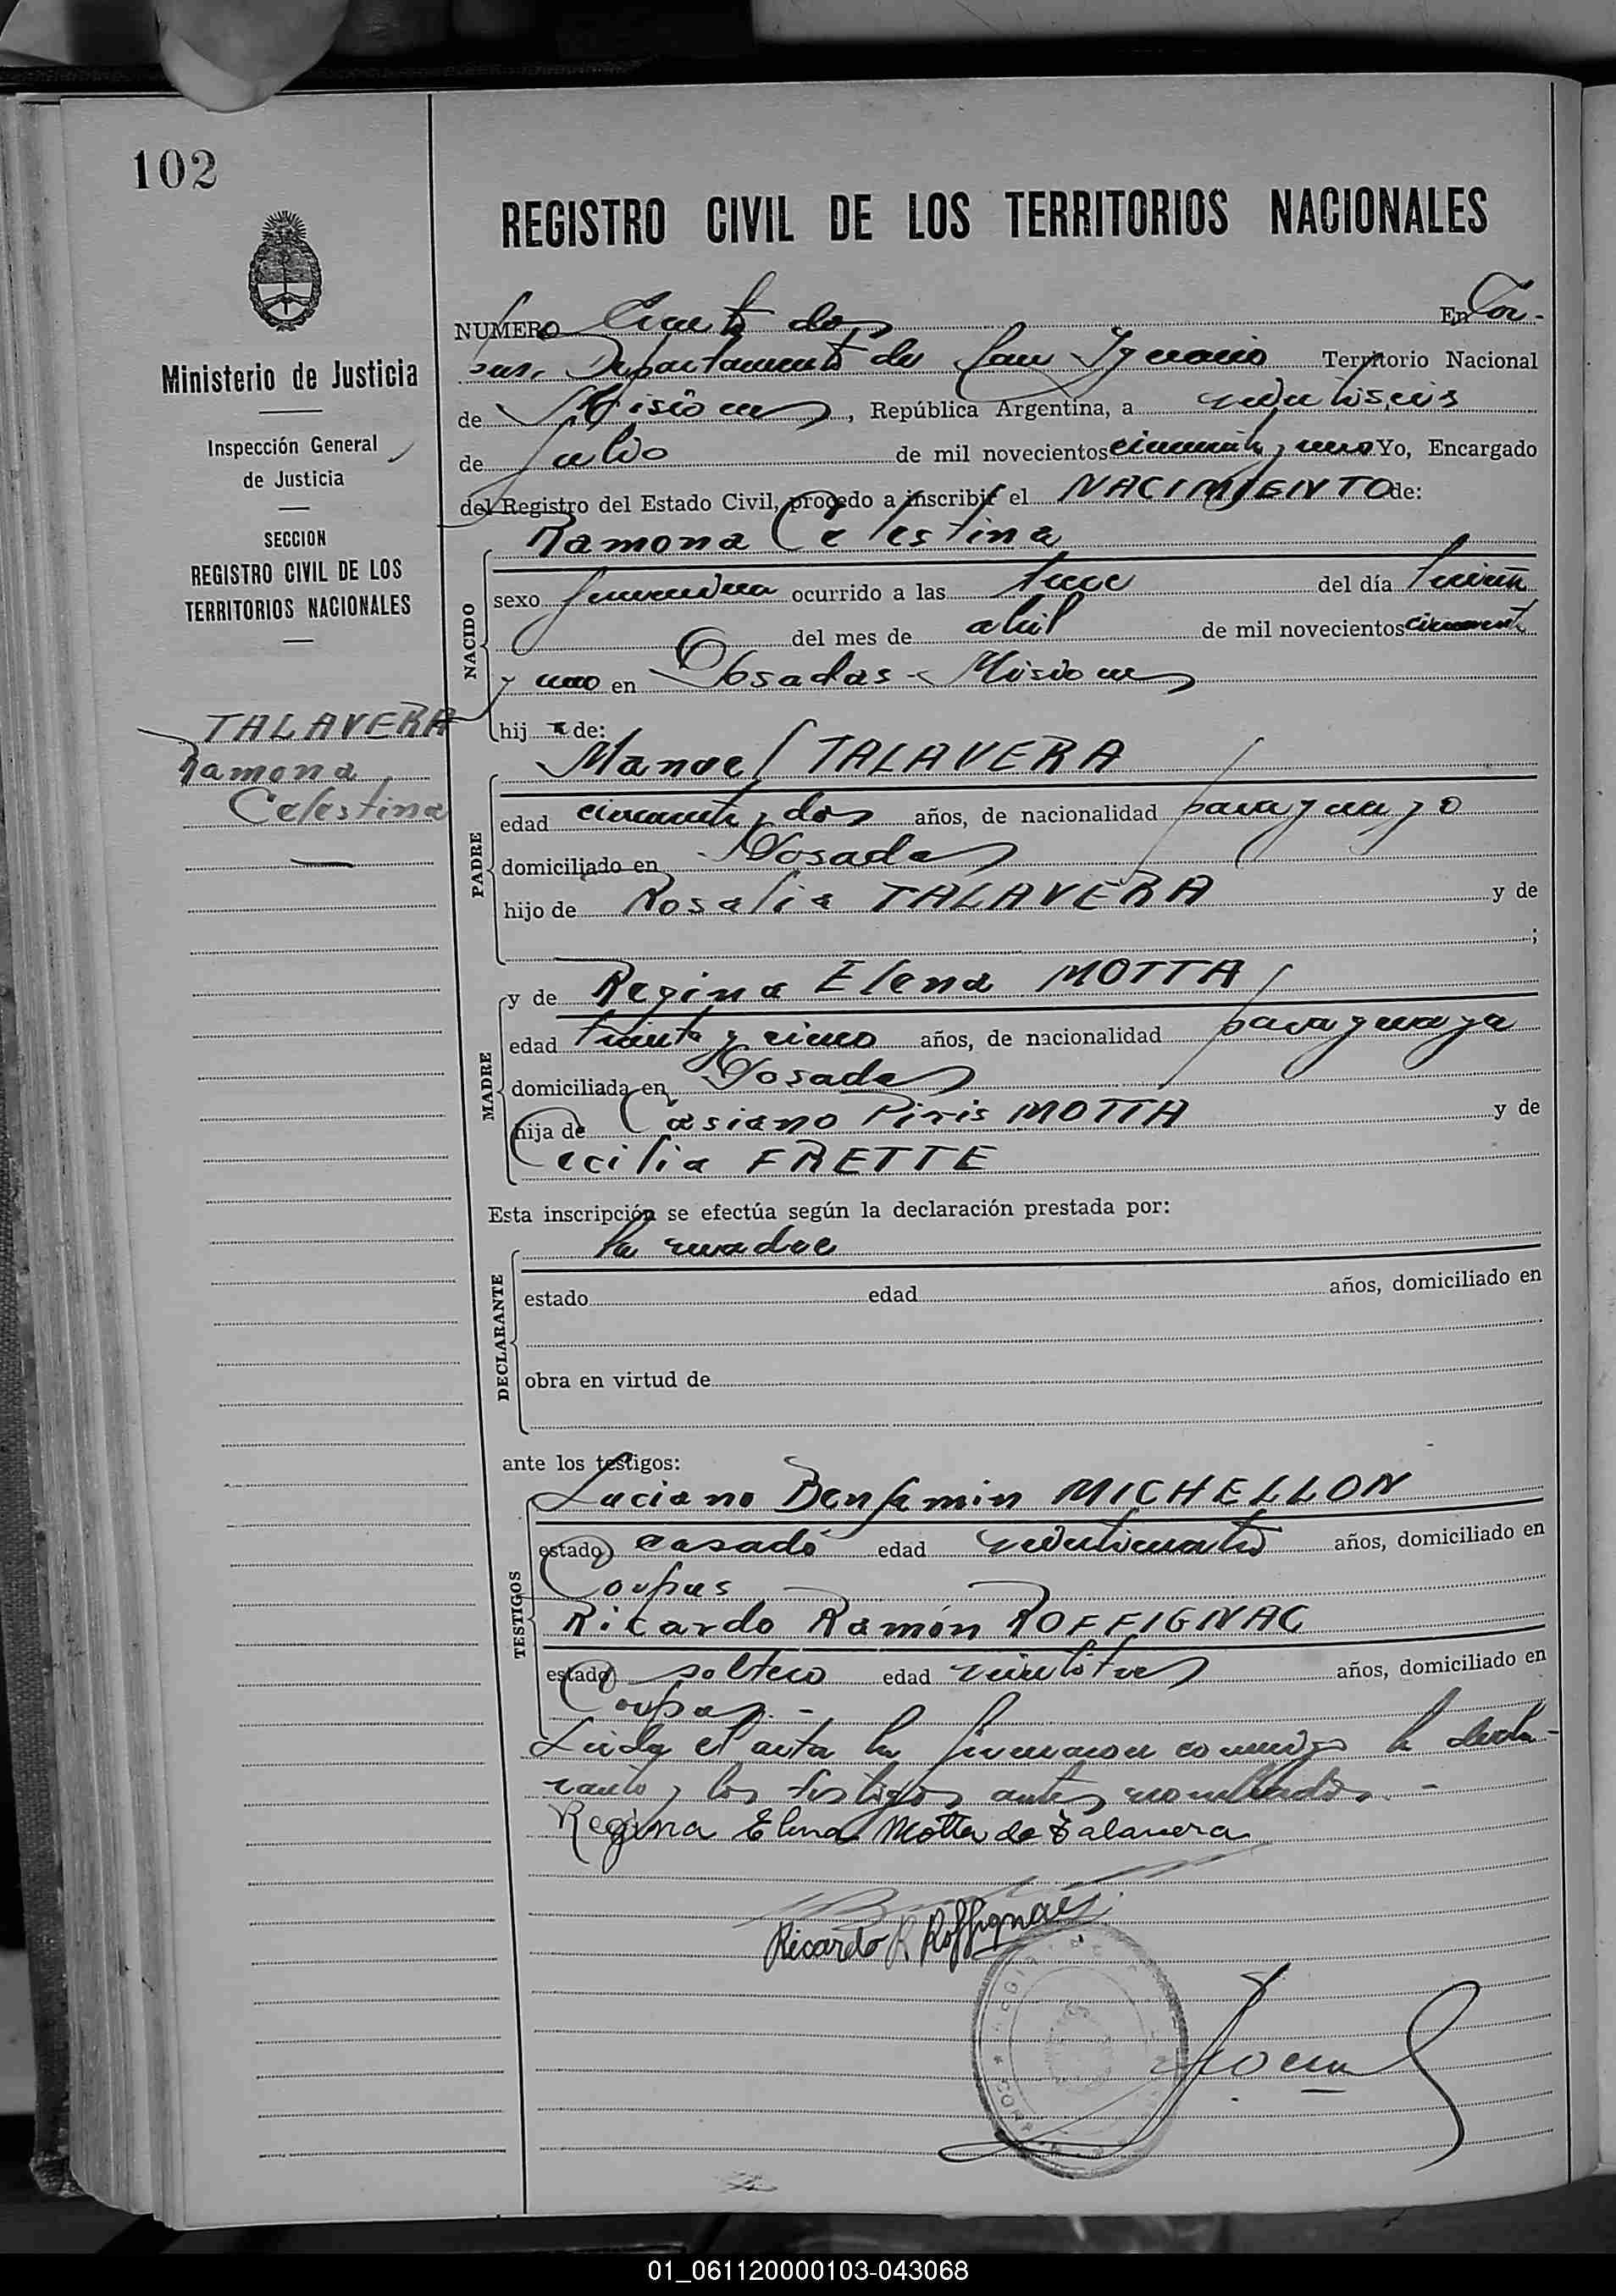 102
REGISTRO CIVIL DE LOS TERRITORIOS NACIONALES
Ministerio de Justicia
Inspección General
de Justicia
SECCION
REGISTRO CIVIL DE LOS
TERRITORIOS NACIONALES
TALAVERA
Ramona
Celestina
NUMERO Ciento dos En Cor-
pus, Departamento de San Ignacio Territorio Nacional
de Misiones, República Argentina, a veintiseis
de Julio de mil novecientos cincuenta y uno Yo, Encargado
del Registro del Estado Civil, procedo a inscribir el NACIMIENTO de:
NACIDO
Ramona Celestina
sexo femenino ocurrido a las trece del día treinta
del mes de abril de mil novecientos cincuenta
y uno en Posadas - Misiones
hija de:
PADRE
Manuel TALAVERA
edad cincuenta y dos años, de nacionalidad paraguayo
domiciliado en Posadas
hijo de Rosalia TALAVERA y de
;
MADRE
y de Regina Elena MOTTA
edad treinta y cinco años, de nacionalidad paraguaya
domiciliada en Posadas
hija de Casiano Piris MOTTA y de
Cecilia FRETTE
Esta inscripción se efectúa según la declaración prestada por:
DECLARANTE
la madre
estado edad años, domiciliado en
obra en virtud de
ante los testigos:
TESTIGOS
Luciano Benjamin MICHELLON
estado casado edad veinticuatro años, domiciliado en
Corpus
Ricardo Ramón ROFFIGNAC
estado soltero edad veintitres años, domiciliado en
Corpus. -
Leida el acta la firmaron conmigo la decla-
rante y los testigos antes nombrados. -
Regina Elena Motta de Talavera
Ricardo R Roffignac
01_061120000103-043068